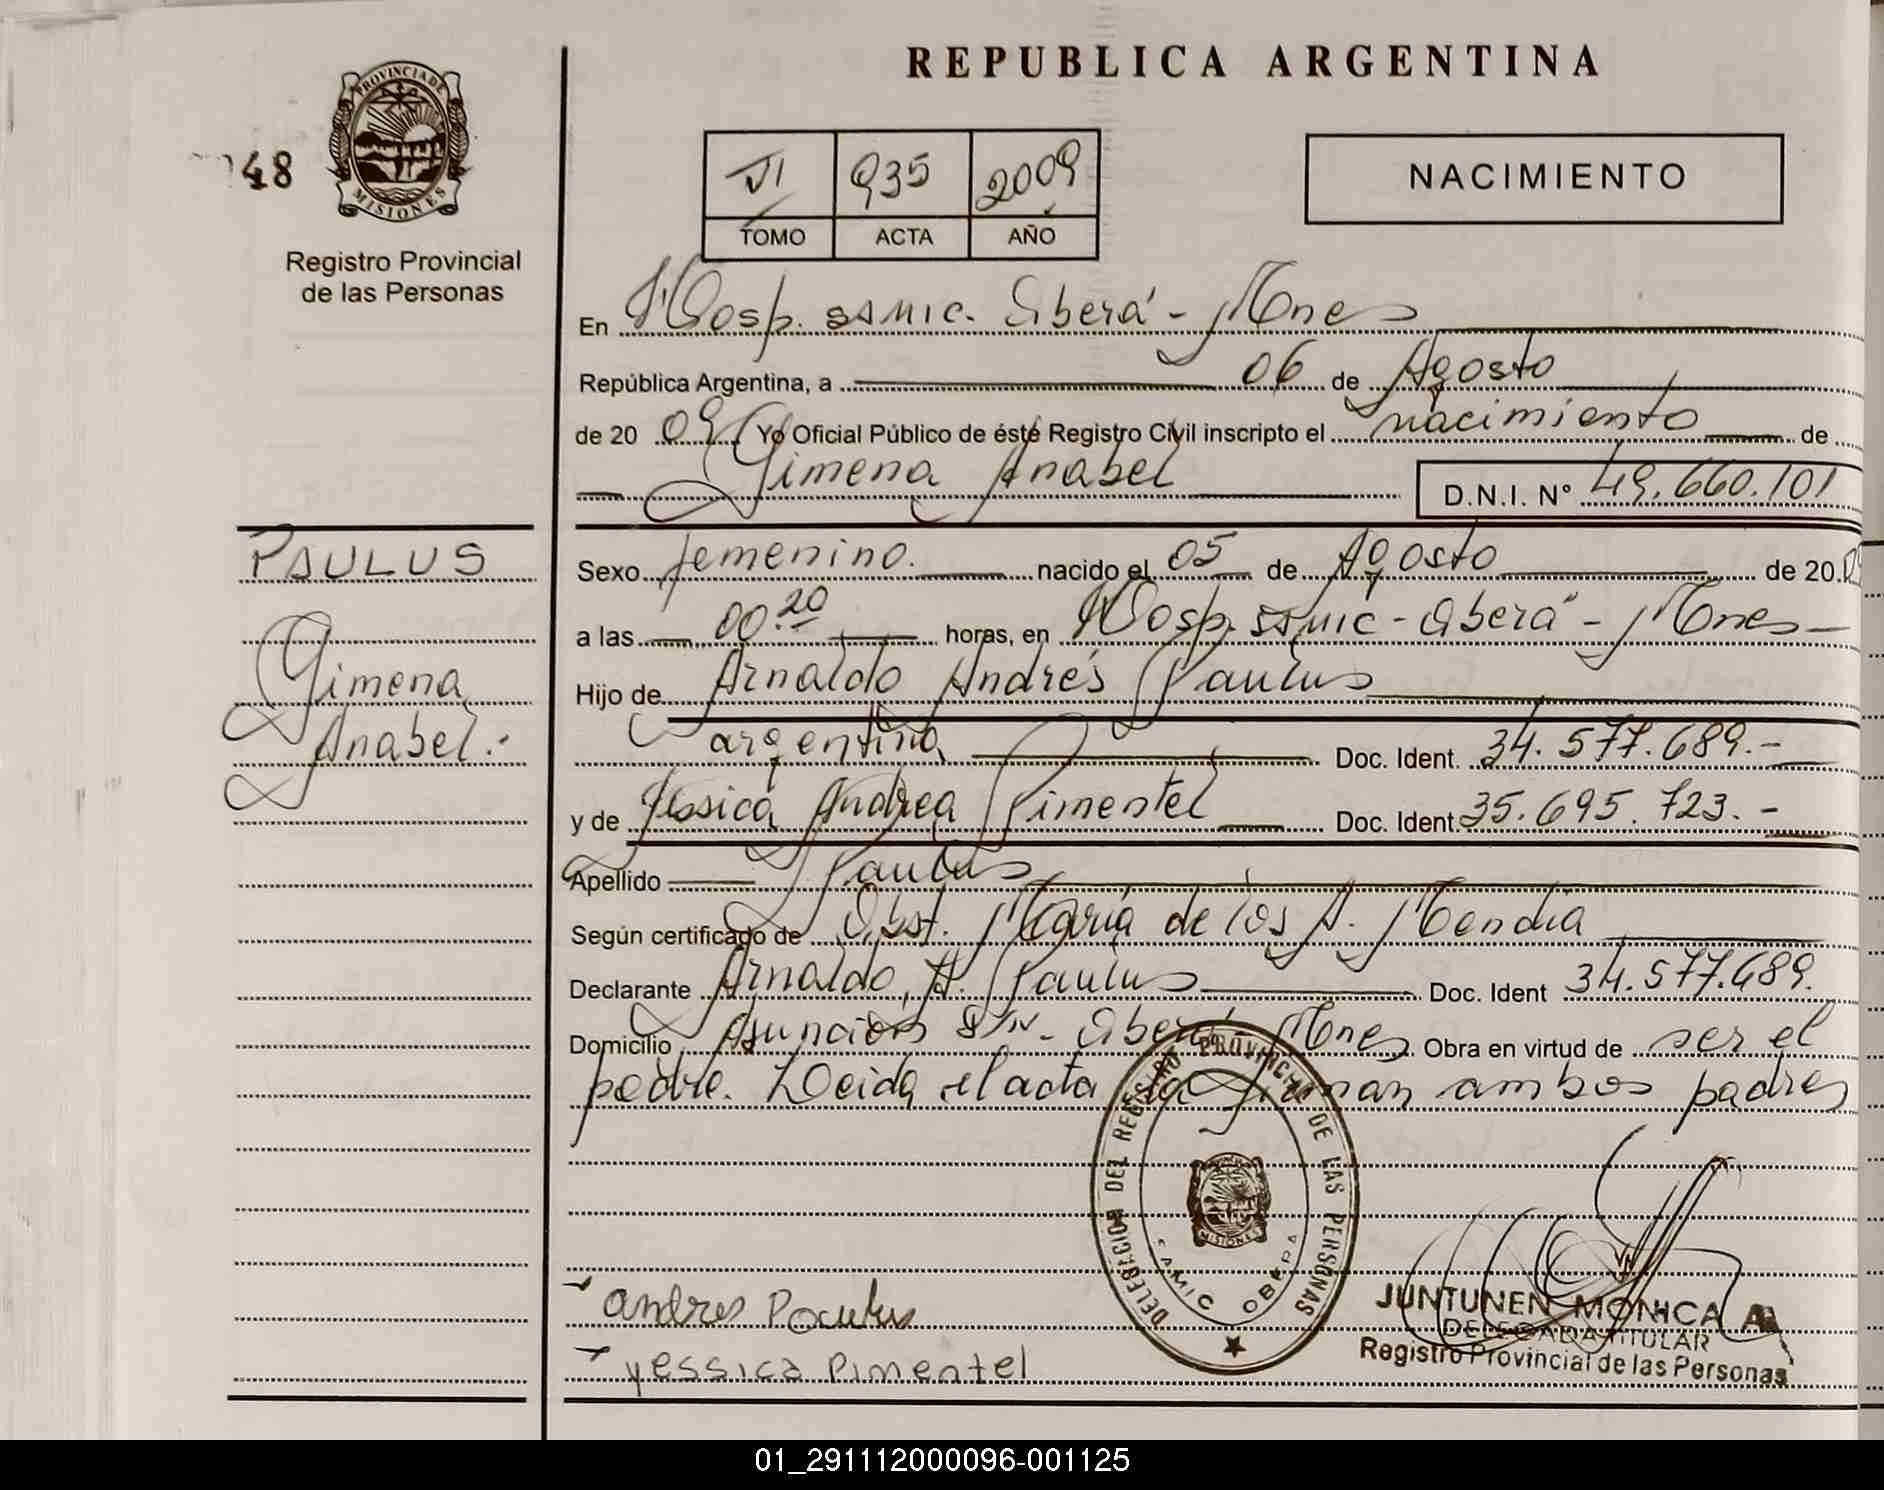 REPUBLICA ARGENTINA
PROVINCIA DE
MISIONES
48
Registro Provincial
de las Personas
VI 935 2009
TOMO ACTA AÑO
NACIMIENTO
En Hosp. SAMIC. Oberá - Mnes
República Argentina, a 06 de Agosto
de 2009 Yo Oficial Público de éste Registro Civil inscripto el nacimiento de
Gimena Anabel D.N.I. N° 49.660.101
PAULUS
Gimena
Anabel.-
Sexo femenino. nacido el 05 de Agosto de 20.09
a las 00.20 horas, en Hosp. SAMIC - Oberá - Mnes -
Hijo de Arnaldo Andrés Paulus
argentina Doc. Ident. 34.577.689.-
y de Yessica Andrea Pimentel Doc. Ident. 35.695.723.-
Apellido Paulus
Según certificado de Obst. María de los A. Mendia
Declarante Arnaldo, A. Paulus Doc. Ident 34.577.689.
Domicilio Asunción S/N - Oberá - Mnes Obra en virtud de ser el
padre. Leida el acta la firman ambos padres
DELEGACION DEL REGISTRO PROVINCIAL DE LAS PERSONAS
MISIONES
SAMIC OBERA
andres Paulus
yessica Pimentel
JUNTUNEN MONICA A
DELEGADA TITULAR
Registro Provincial de las Personas
01_291112000096-001125